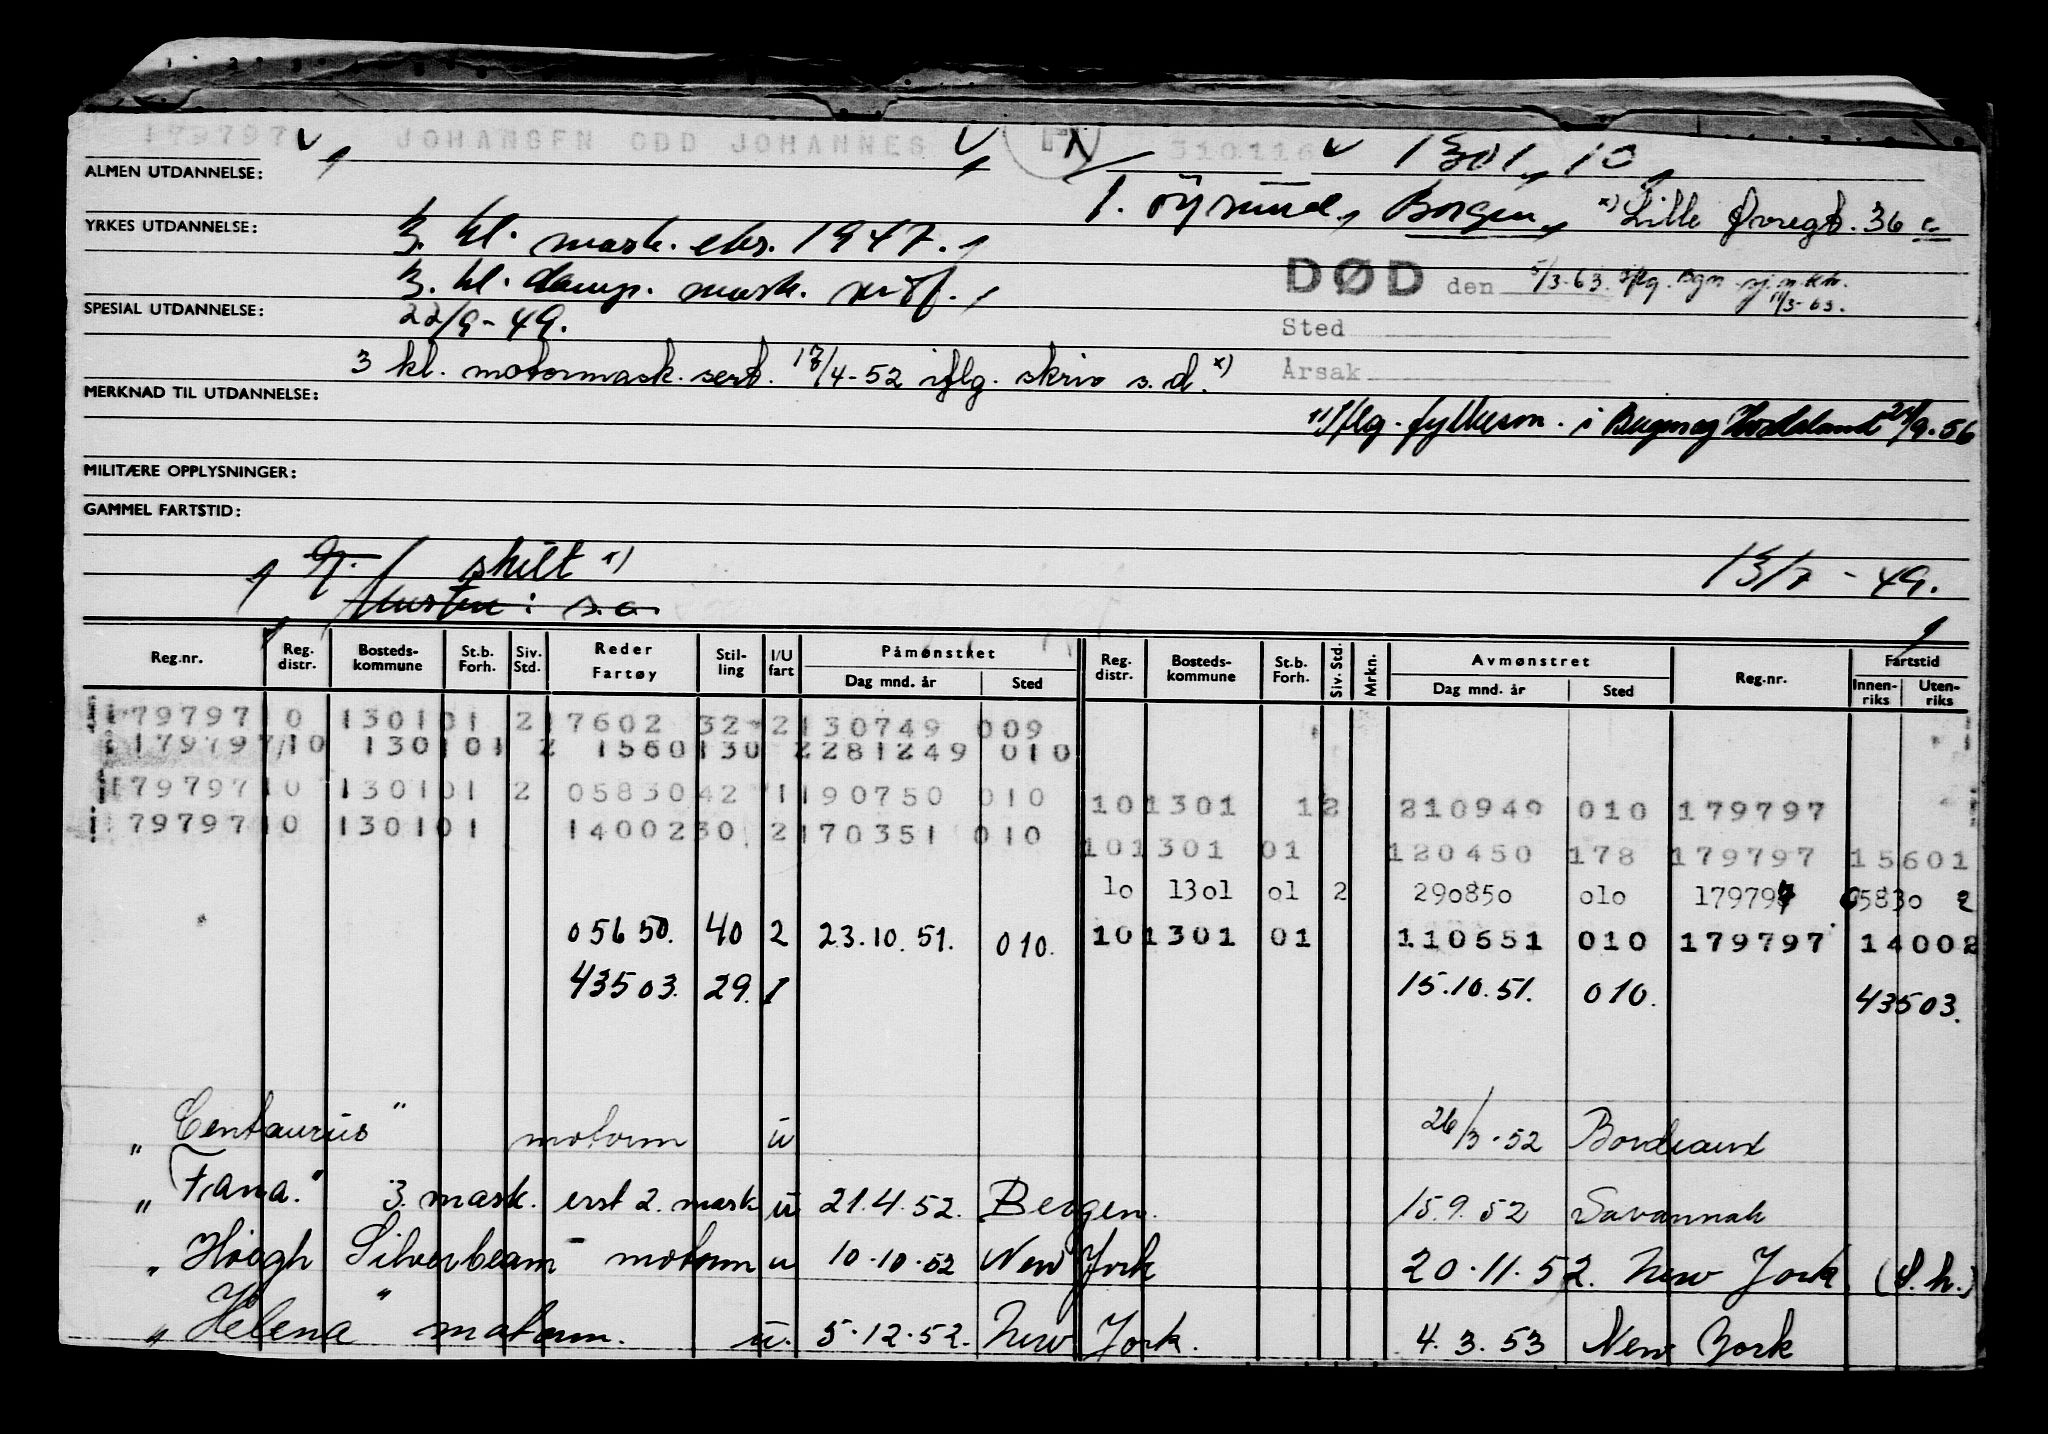 179797 JOHANSEN ODD JOHANNES 310116 1301, 10,
ALMEN UTDANNELSE:
Borgen, x) Lille Øvregt. 36 c
YRKES UTDANNELSE: 3. kl. mask. eks. 1947.
DØD den 5/3-63 iflg. Bgn
11/3-63.
3. kl. damp. mask.
SPESIAL UTDANNELSE: 22/9-49.
Sted
3 kl. motormask. sert. 17/4-52 iflg. skriv s.d. x)
Årsak
MERKNAD TIL UTDANNELSE:
iflg. fylkesm. i Bergen og Hordaland 24/9-56
MILITÆRE OPPLYSNINGER:
GAMMEL FARTSTID:
g. skilt x) 13/7-49.
Reg.nr. Reg. distr. Bosteds- kommune St.b. Forh. Siv. Std. Reder Fartøy Stil- ling I/U fart Påmønstret Dag mnd. år Sted Reg. distr. Bosteds- kommune St.b. Forh. Siv. Std. Mrkn. Avmønstret Dag mnd. år Sted Reg.nr. Fartstid Innen- riks Uten- riks
179797 10 1301 01 2 7602 32 2 130749 009
179797 10 1301 01 2 15601 30 2 281249 010
179797 10 1301 01 2 05830 42 1 190750 010
10 1301 12 210949 010 179797
179797 10 1301 01 14002 30 2 170351 010
10 1301 01 120450 178 179797 15601
10 1301 01 2 290850 010 179797 05830 2
05650. 40 2 23.10.51. 010.
10 1301 01 110551 010 179797 14002
43503. 29. 1 15.10.51. 010. 43503.
"Centaurus" motorm u 26/3-52 Bordeaux
"Fiana." 3. mask. erst 2. mask u 21.4.52. Bergen. 15.9.52 Savannah
"Höegh Silverbeam" motorm u 10.10.52 New York 20.11.52. New York. (S.h.)
"Helena" motorm. u. 5.12.52. New York. 4.3.53 New York